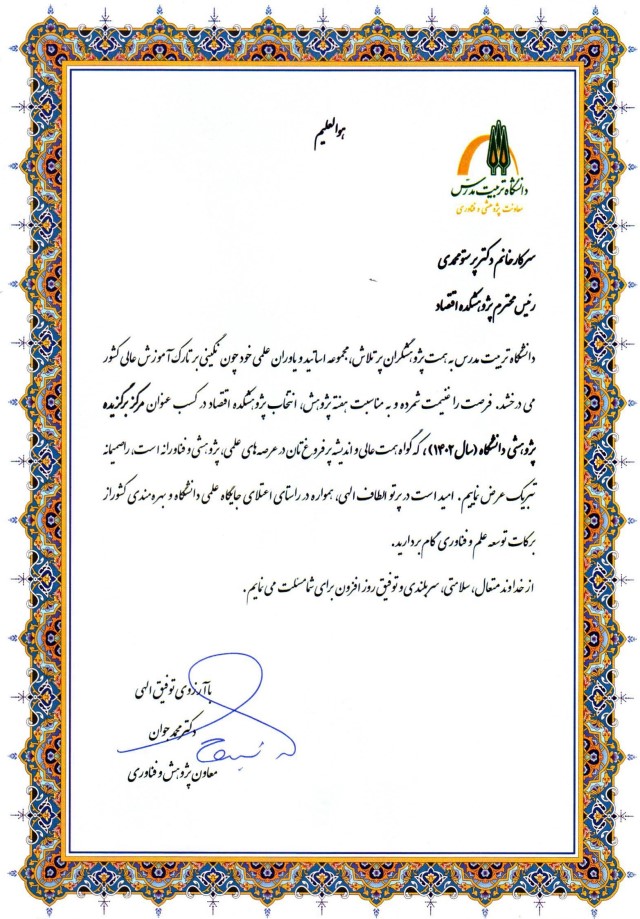 هوالعلیم
دانشگاه تربیت مدرس
معاونت پژوهشی و فناوری
سرکار خانم دکتر پرستو محمدی
رئیس محترم پژوهشکده اقتصاد
دانشگاه تربیت مدرس به همت پژوهشگران پرتلاش، مجموعه اساتید و یاوران علمی خود چون نگینی بر تارک آموزش عالی کشور
می درخشد. فرصت را غنیمت شمرده و به مناسبت هفته پژوهش، انتخاب پژوهشکده اقتصاد در کسب عنوان مرکز برگزیده
پژوهشی دانشگاه (سال ۱۴۰۲)، که گواه همت عالی و اندیشه پر فروغ تان در عرصه های علمی، پژوهشی و فناورانه است، را صمیمانه
تبریک عرض نماییم. امید است در پرتو الطاف الهی، همواره در راستای اعتلای جایگاه علمی دانشگاه و بهره مندی کشور از
برکات توسعه علم و فناوری گام بردارید.
از خداوند متعال، سلامتی، سربلندی و توفیق روز افزون برای شما مسئلت می نمایم.
با آرزوی توفیق الهی
دکتر محمد جوان
معاون پژوهش و فناوری